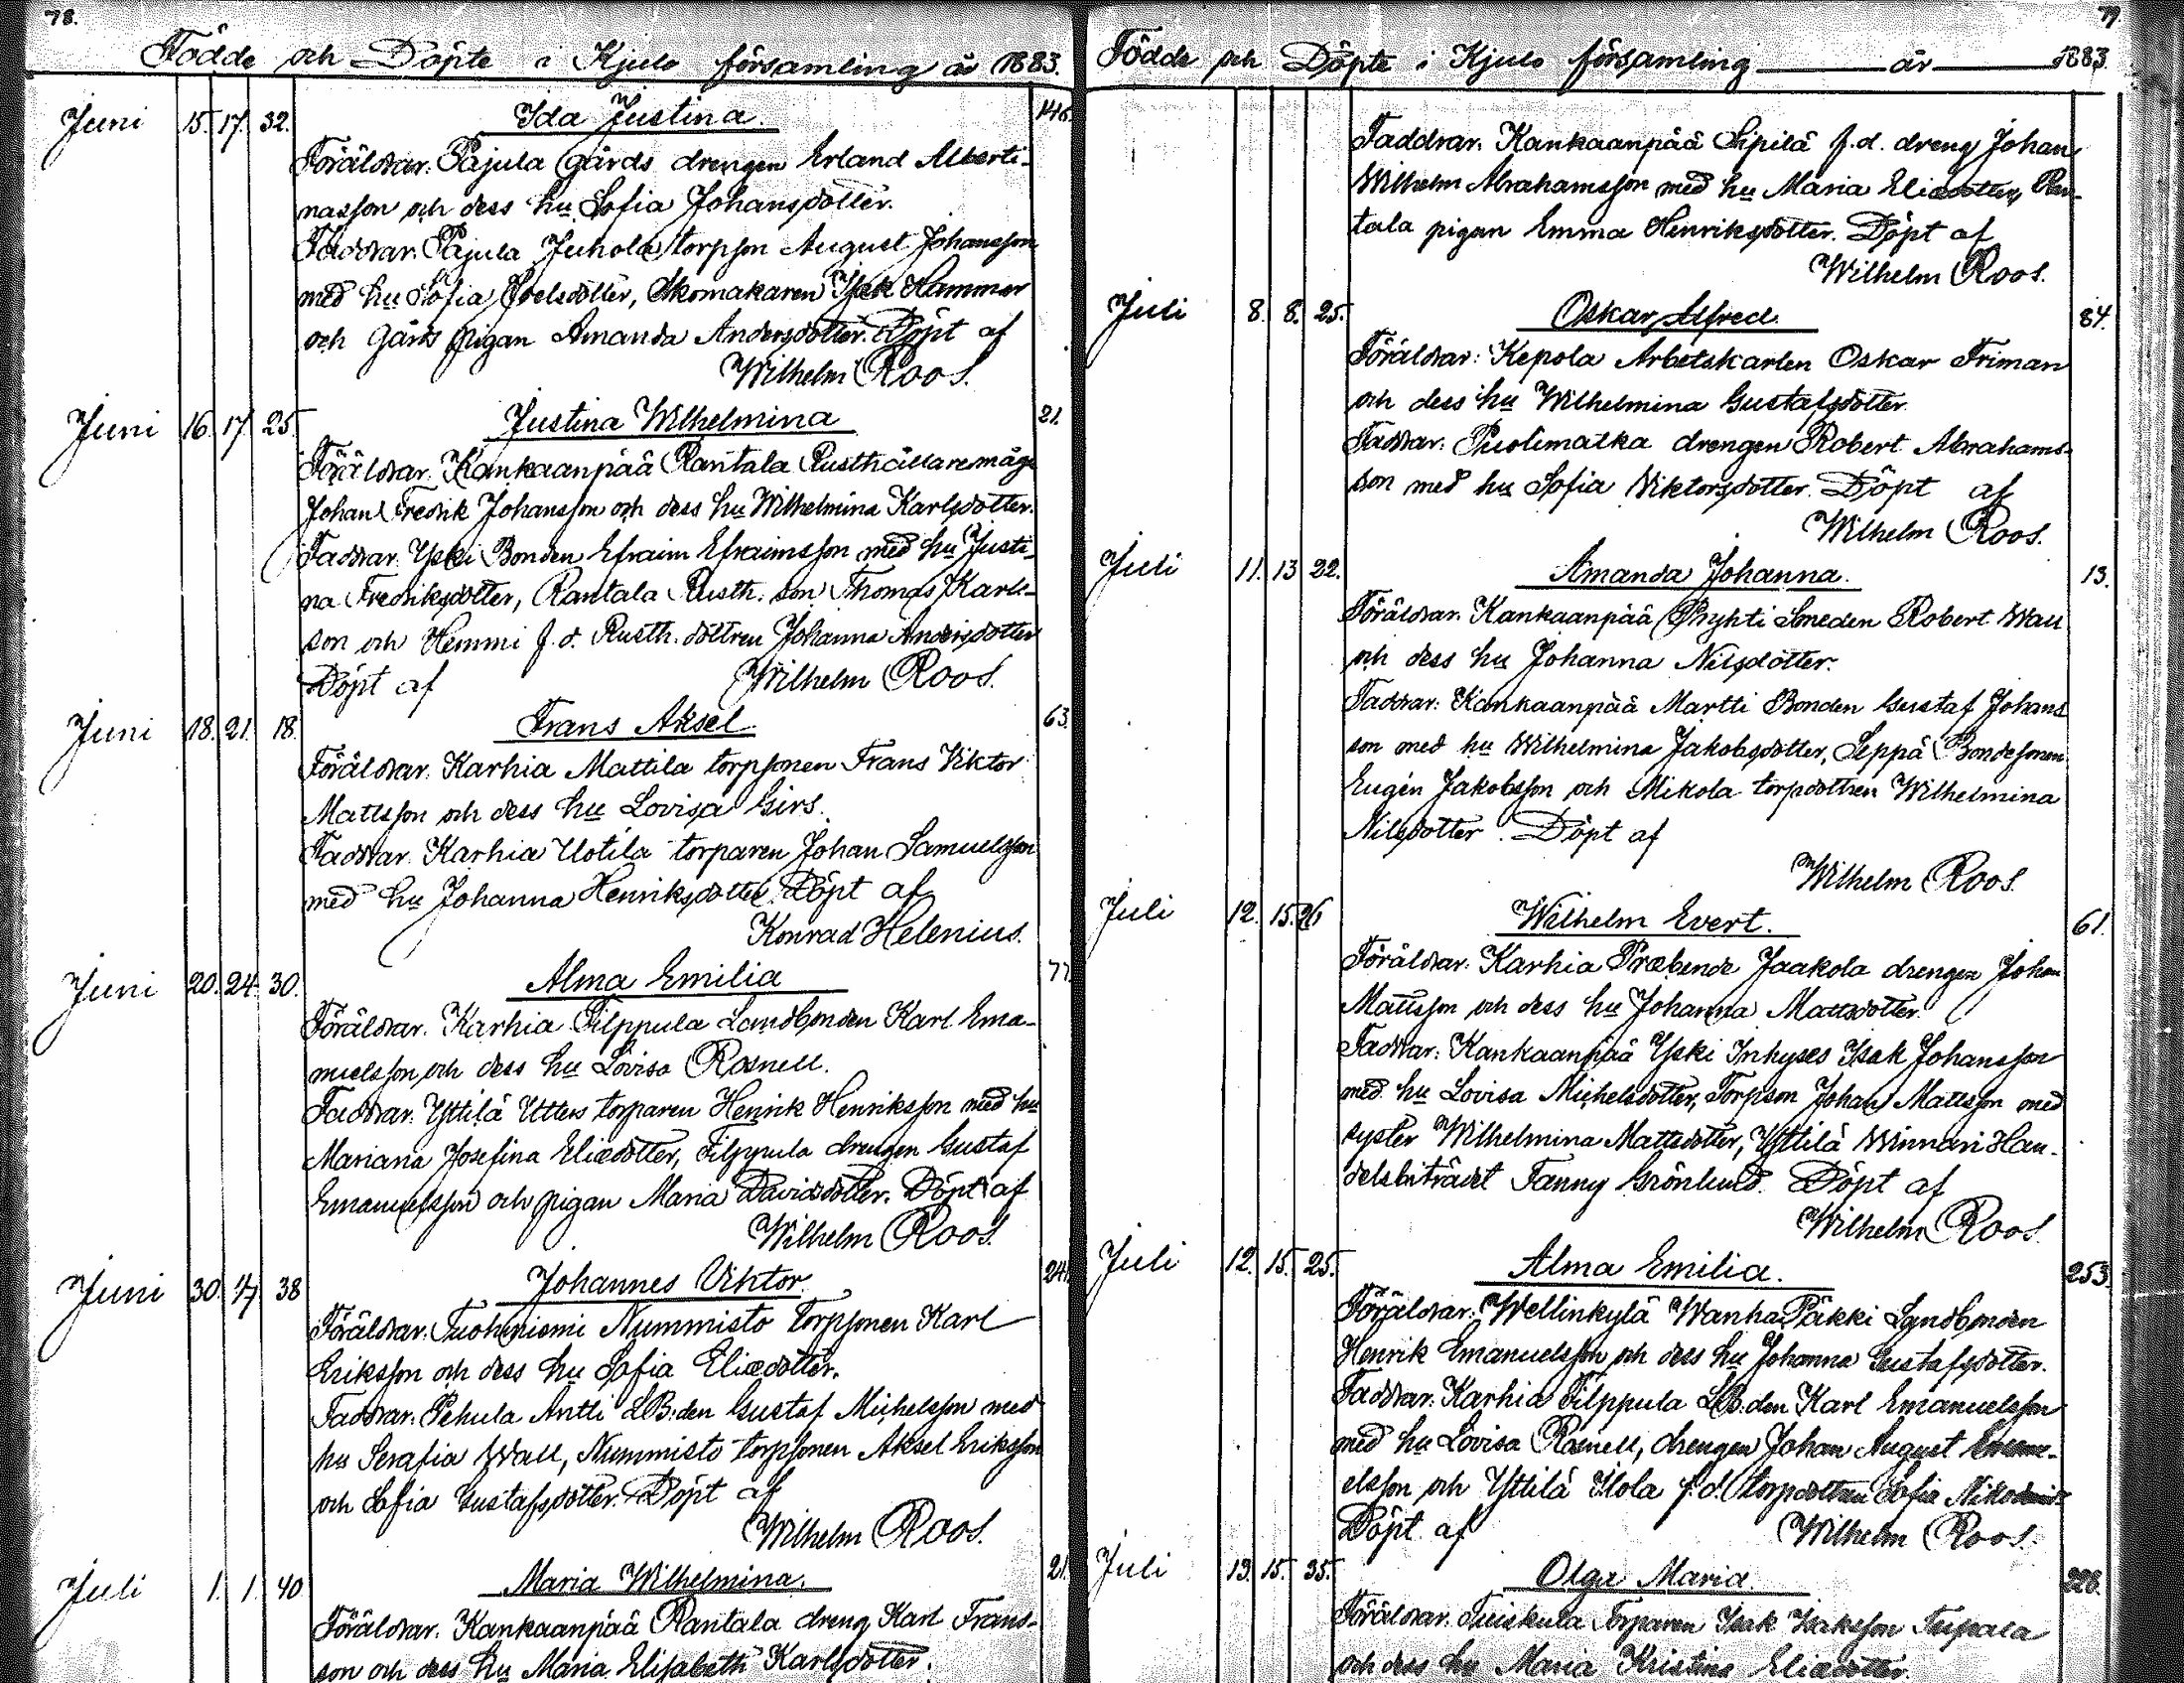 78.
Födde och Döpte i Kjulo församling år 1883.
Juni 15. 17. 32. Ida Justina. 146.
Föräldrar: Pajula gårds drengen Erland Alberti-
nasson och dess hu Sofia Johansdotter.
Faddrar: Pajula Juhola torpson August Johansson
med hu Sofia Joelsdotter, Skomakaren Isak Hammar
och Gårds pigan Amanda Andersdotter. Döpt af
Wilhelm Roos.
Juni 16. 17. 25. Justina Wilhelmina 21.
Föräldrar: Kankaanpää Rantala Rusthållaremåge
Johan Fredrik Johansson och dess hu Wilhelmina Karlsdotter.
Faddrar: Yski Bonden Efraim Efraimsson med hu Justi-
na Fredriksdotter, Rantala Rusth. son Thomas Karls-
son och Hemmi f.d. Rusth. dottren Johanna Andersdotter
Döpt af Wilhelm Roos.
Juni 18. 21. 18. Frans Aksel 63.
Föräldrar: Karhia Mattila torpsonen Frans Viktor
Mattsson och dess hu Lovisa Girs.
Faddrar: Karhia Uotila torparen Johan Samuelsson
med hu Johanna Henriksdotter. Döpt af
Konrad Helenius.
Juni 20. 24. 30. Alma Emilia 77.
Föräldrar: Karhia Filppula Landbonden Karl Ema-
nuelsson och dess hu Lovisa Rosnell.
Faddrar: Yttilä Utters torparen Henrik Henriksson med hu
Mariana Josefina Eliædotter, Filppula drengen Gustaf
Emanuelsson och pigan Maria Davidsdotter. Döpt af
Wilhelm Roos.
Juni 30. 1/7 38 Johannes Viktor 241.
Föräldrar: Tuohiniemi Nummisto torpsonen Karl
Eriksson och dess hu Sofia Eliædotter.
Faddrar: Pehula Antti LB:den Gustaf Michelsson med
hu Serafia Wall, Nummisto torpsonen Aksel Eriksson
och Sofia Gustafsdotter. Döpt af
Wilhelm Roos.
Juli 1. 1. 40 Maria Wilhelmina. 21.
Föräldrar: Kankaanpää Rantala dreng Karl Frans-
son och dess hu Maria Elisabeth Karlsdotter.
79.
Födde och Döpte i Kjulo församling år 1883.
Faddrar: Kankaanpää Sipilä f.d. dreng Johan
Wilhelm Abrahamsson med hu Maria Eliædotter, Ran-
tala pigan Emma Henriksdotter. Döpt af
Wilhelm Roos.
Juli 8. 8. 25. Oskar Alfred. 84.
Föräldrar: Kepola Arbetskarlen Oskar Friman
och dess hu Wilhelmina Gustafsdotter
Faddrar: Puolimatka drengen Robert Abrahams-
son med hu Sofia Viktorsdotter. Döpt af
Wilhelm Roos.
Juli 11. 13 22. Amanda Johanna. 13.
Föräldrar: Kankaanpää Pryhti Smeden Robert Wall
och dess hu Johanna Nilsdotter.
Faddrar: Kankaanpää Martti Bonden Gustaf Johans
son med hu Wilhelmina Jakobsdotter, Seppä Bondesonen
Eugén Jakobsson och Mikola torpdottren Wilhelmina
Nilsdotter. Döpt af
Wilhelm Roos.
Juli 12. 15. 26 Wilhelm Evert. 61.
Föräldrar: Karhia Præbende Jaakola drengen Johan
Mattsson och dess hu Johanna Mattsdotter.
Faddrar: Kankaanpää Yski Inhyses Isak Johansson
med hu Lovisa Michelsdotter, Torpson Johan Mattsson med
syster Wilhelmina Mattsdotter, Yttilä Winnari Han-
delsbiträdet Fanny Grönlund. Döpt af
Wilhelm Roos.
Juli 12. 15. 25. Alma Emilia. 253
Föräldrar: Wellinkylä WanhaPäkki Landbonden
Henrik Emanuelsson och dess hu Johanna Gustafsdotter.
Faddrar: Karhia Filppula LB:den Karl Emanuelsson
med hu Lovisa Rosnell, drengen Johan August Emanu-
elsson och Yttilä Ilola f.d. torpdottren Sofia
Döpt af Wilhelm Roos.
Juli 13. 15. 35. Olga Maria. 228.
Föräldrar: Tuiskula Torparen Isak Isaksson Tupala
och dess hu Maria Kristina Eliædotter.